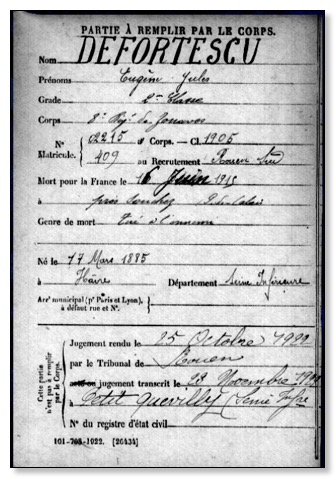 PARTIE À REMPLIR PAR LE CORPS.
Nom DEFORTESCU
Prénoms Eugène Jules
Grade 2me Classe
Corps 8e Régt de Zouaves
N° 02215 au Corps. — Cl. 1905
Matricule. 409 au Recrutement Rouen Sud
Mort pour la France le 16 Juin 1915
à près Pas de Calais
Genre de mort Tué à l'ennemi
Né le 17 Mars 1885
à Hâvre Département Seine Inférieure
Arrt municipal (pr Paris et Lyon),
à défaut rue et N°.
Cette partie
n'est pas à remplir
par le Corps.
Jugement rendu le 25 Octobre 1922
par le Tribunal de Rouen
jugement transcrit le 29 Novembre 1922
à Petit Quevilly (Seine Infre)
N° du registre d'état civil
101-708-1922. [26434]